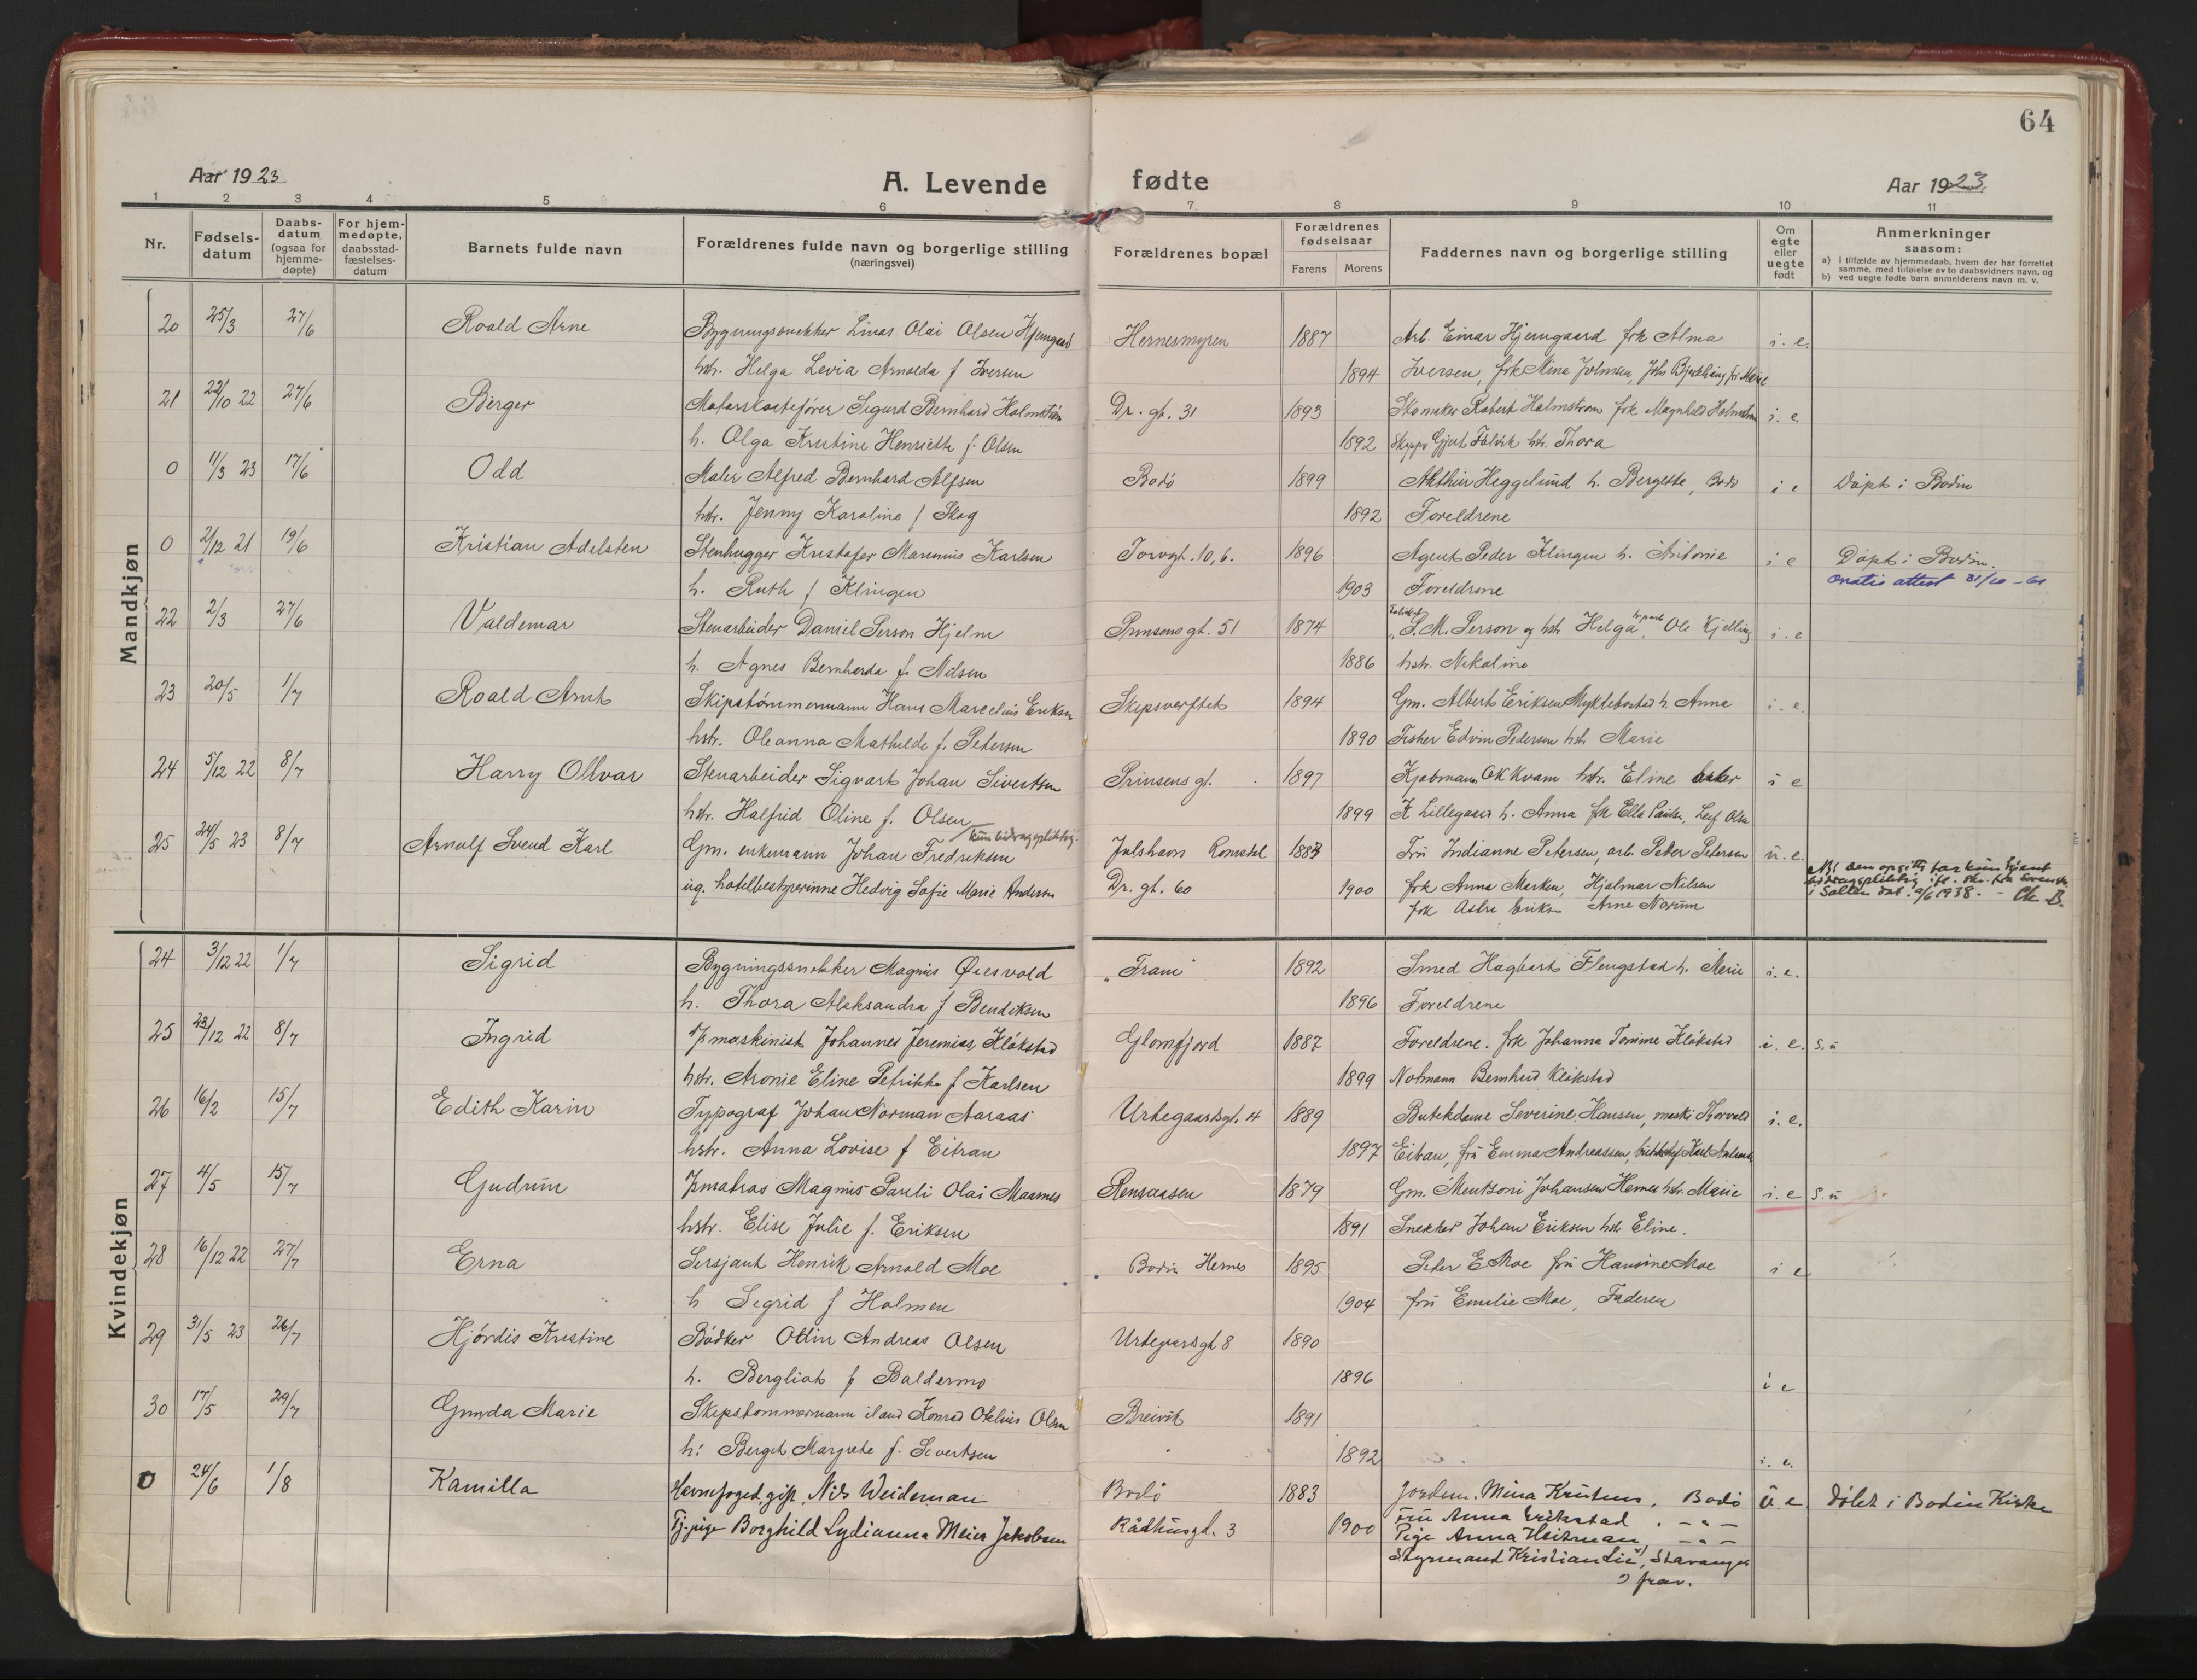 64
Aar 1923
A. Levende fødte
Aar 1923
1 2 3 4 5 6 7 8 9 10 11
Nr.
Fødsels-
datum
Daabs-
datum
(ogsaa for
hjemme-
døpte)
For hjem-
medøpte,
daabsstad-
fæstelses-
datum
Barnets fulde navn
Forældrenes fulde navn og borgerlige stilling
(næringsvei)
Forældrenes bopæl
Forældrenes
fødselsaar
Farens Morens
Faddernes navn og borgerlige stilling
Om
egte
eller
uegte
født
Anmerkninger
saasom:
a) i tilfælde av hjemmedaab, hvem der har forrettet
samme, med tilføielse av to daabsvidners navn, og
b) ved uegte fødte barn anmelderens navn m. v.
Mandkjøn
20 25/3 27/6 Roald Arne Bygningssnekker Linas Olai Olsen Hjemgaard Hernesmyren 1887 Arb. Einar Hjemgaard frk Alma i. e.
hstr. Helga Levia Arnolda f Iversen 1894 Iversen, frk Mina Johnsen,
21 22/10 22 27/6 Birger Sigurd Bernhard Holmstrøm Dr. gt. 31 1893 Skomaker Robert Holmstrøm frk Magnhild Holmstrøm i. e.
h. Olga Kristine Henriette f. Olsen 1892 hstr. Thora
0 11/3 23 17/6 Odd Maler Alfred Bernhard Alfsen Bodø 1899 Heggelund h. Bergitte, Bodø i e Døpt i Bodin
hstr. Jenny Karoline f Skog 1892 Foreldrene
0 2/12 21 19/6 Kristian Adelsten Stenhugger Kristofer Marinius Karlsen Torvgt. 10, 6. 1896 Agent Peder Klingen h. Antonie i e Døpt i Bodin.
h. Ruth f Klingen 1903 Foreldrene gratis attest 31/10 - 61
22 2/3 27/6 Valdemar Stenarbeider Daniel Person Hjelm Prinsensgt. 51 1874 P. M. Person og hstr Helga, Ole Kjelling i. e
h. Agnes Bernharda f. Nilsen 1886 hstr. Nikoline
23 20/5 1/7 Roald Arnt Skipstømmermann Hans Marcelius Eriksen Skipsverftet 1894 Gm. Albert Eriksen Myklebostad h. Anna i. e.
hstr. Oleanna Mathilde f. Petersen 1890 Fisker Edvin Pedersen hstr Marie
24 5/12 22 8/7 Harry Ollvar Stenarbeider Sigvart Johan Sivertsen Prinsensgt. 1897 Kjøbmann OK Kvam hstr. Eline i e
hstr. Halfrid Oline f. Olsen 1899 Lillegaard h. Anna frk Ella Paulsen, Leif Olsen
25 24/5 23 8/7 Arnulf Svend Karl Gm. enkemann Johan Fredriksen kun bidragspliktig Julshavn Romsdal 1883 Fru Indianne Petersen, arb. Peder Petersen u. e.
ug. hotelbestyrerinne Hedvig Sofie Marie Andersen Dr. gt. 60 1900 frk Anna Marken, Hjalmar Nilsen
frk Astri Eriksen Arne Norum
Kvindekjøn
24 3/12 22 1/7 Sigrid Bygningssnekker Magnus Øiesvold „Fram" 1892 Smed Hagbart Flengstad h. Marie i. e.
h. Thora Aleksandra f Bendiksen 1896 Foreldrene
25 23/12 22 8/7 Ingrid maskinist Johannes Jeremias Kløkstad Glomfjord 1887 Foreldrene. frk Johanna Tomine Kløkstad i. e. s. u
hstr. Aronie Eline Petrikke f Karlsen 1899 Notmann Bernhard Kløkstad
26 16/2 15/7 Edith Karin Typograf Johan Norman Aaraas Urtegaardsgt. 4 1889 Butikdame Severine Hansen, mask. Torvald i. e.
hstr. Anna Lovise f Eitran 1897 Eitran, fru Emma Andreassen,
27 4/5 15/7 Gudrun Magnus Pauli Olai Maanes Rensaasen 1879 Gm. Mentsoni Johansen Hernes hstr. Marie i. e s. u
hstr. Elise Julie f. Eriksen 1891 Snekker Johan Eriksen hstr Eline.
28 16/12 22 27/7 Erna Sersjant Henrik Arnold Moe Bodin Hernes 1895 Peter E Moe fru Hansine Moe i e
h Sigrid f Holmen 1904 fru Emilie Moe, Faderen
29 31/5 23 26/7 Hjørdis Kristine Bødker Otlin Andreas Olsen Urtegardsgt 8 1890
h. Bergliot f Baldermo 1896 i e
30 17/5 29/7 Gunda Marie Skipstømmermann Konrad Otelius Olsen Breivik 1891
h: Bergit Margrete f. Sivertsen 1892 i. e.
0 24/6 1/8 Kamilla Havnefoged, gift, Nils Weideman Bodø 1883 Jordem. Mina Knutsen, Bodø u e døbt i Bodin Kirke
Tj.pige Borghild Lydianna Meier Jakobsen Rådhusgt. 3 1900 Fru Anna Erikstad . - " -
Pige Anna Heitman - " -
Styrmand Kristian Lie, Stavanger
frav.